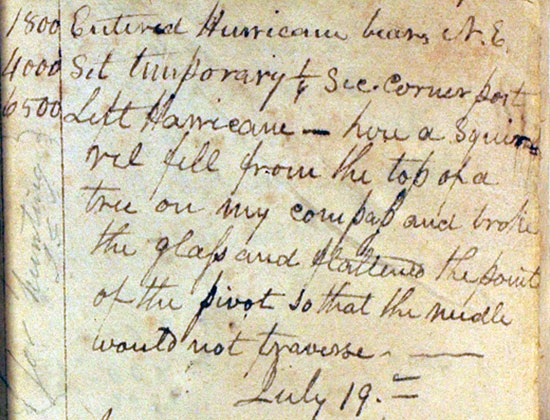 1800 Entered Hurricane bears N.E.
4000 Set temporary 1/4 Sec. Corner post
6500 Left Harricane — here a Squir
rel fell from the top of a
tree on my compass and broke
the glass and flattened the point
of the pivot so that the needle
would not traverse. —
July 19.